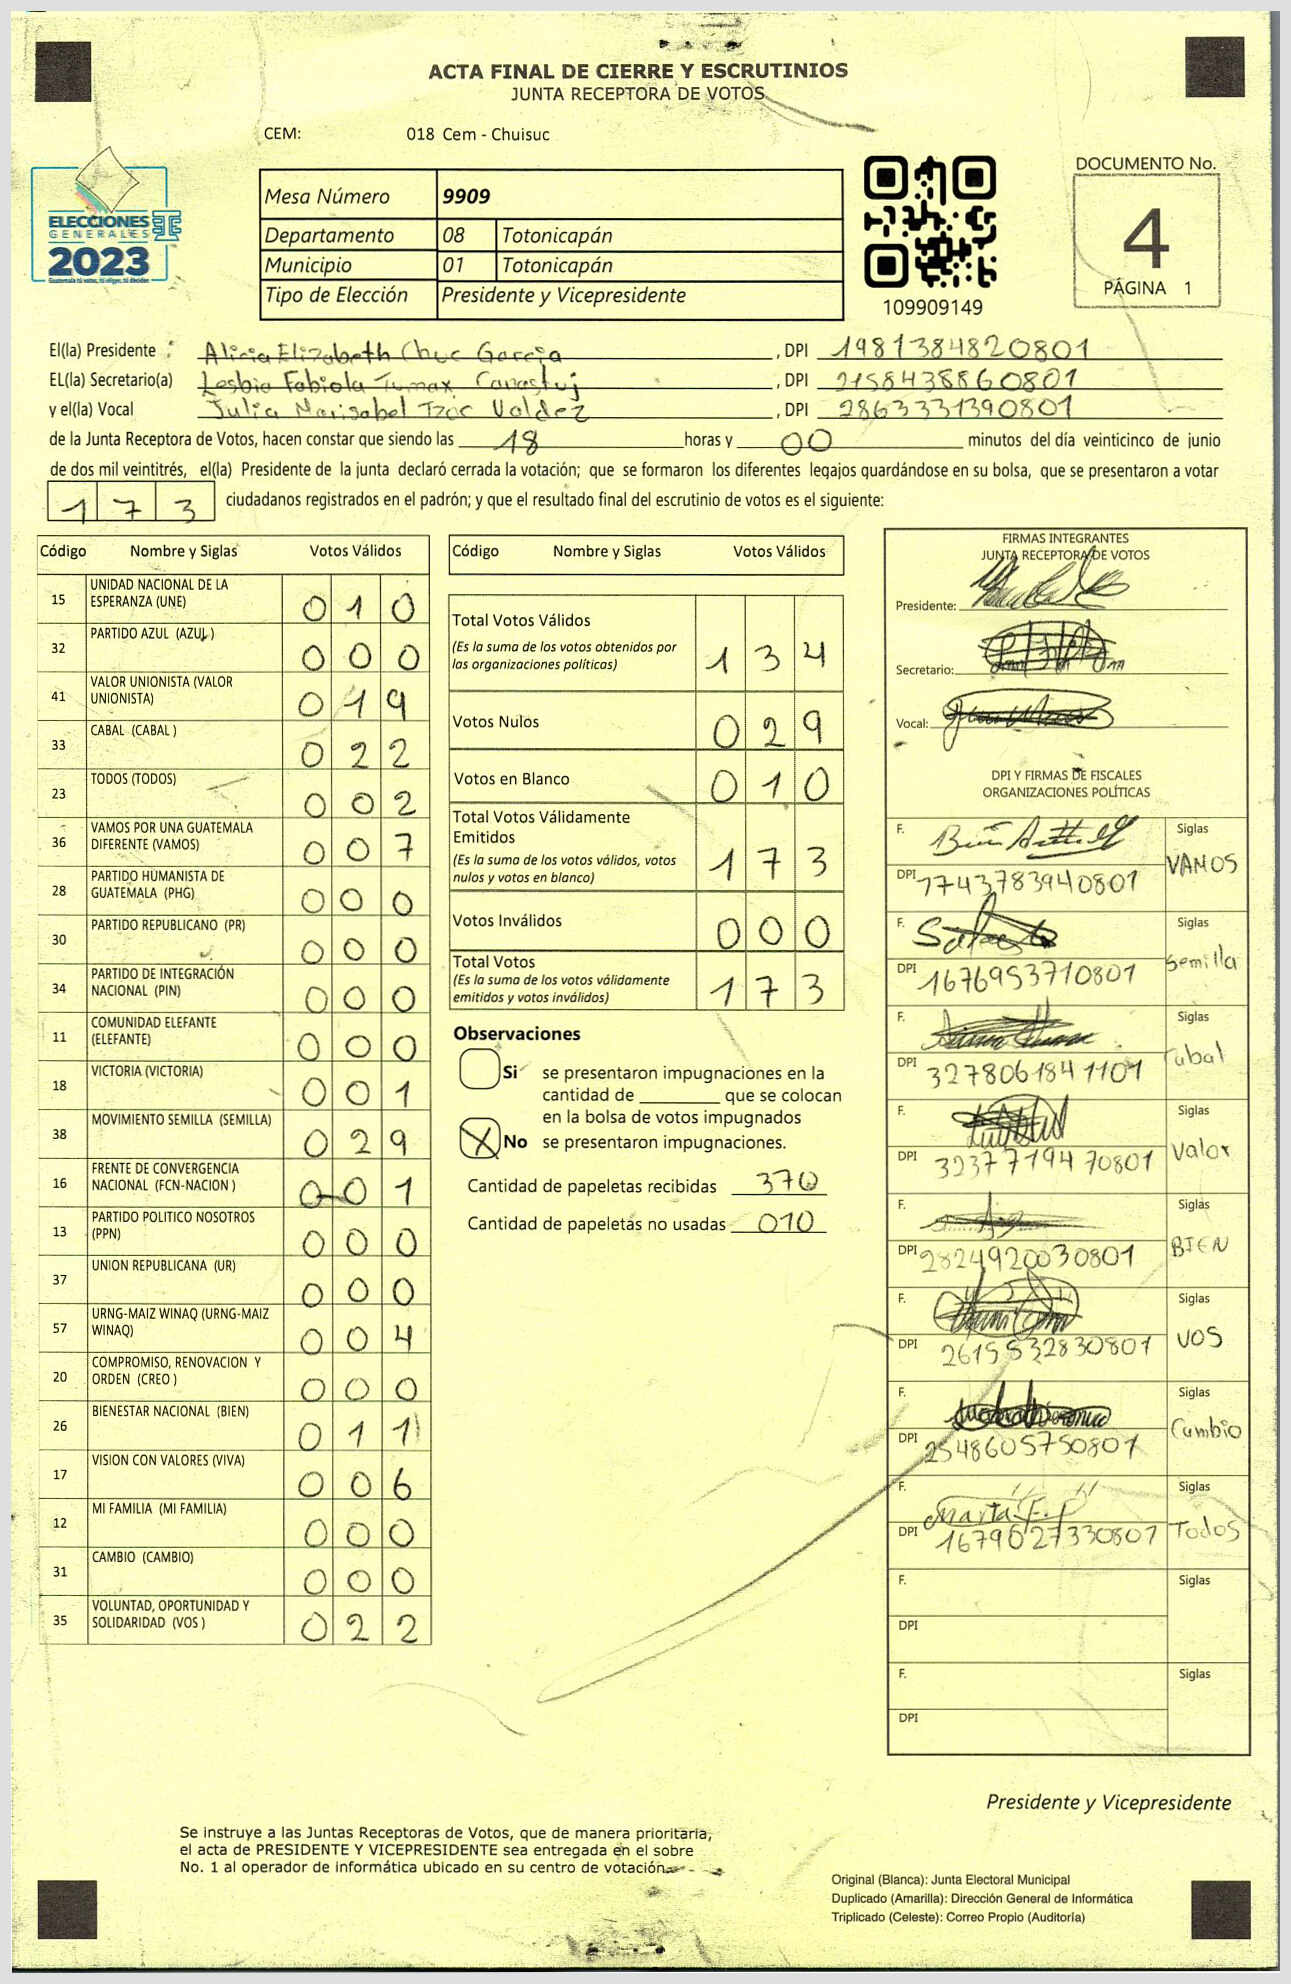 ACTA FINAL DE CIERRE Y ESCRUTINIOS
JUNTA RECEPTORA DE VOTOS
CEM: 018 Cem - Chuisuc
ELECCIONES
GENERALES
2023
Mesa Número 9909
Departamento 08 Totonicapán
Municipio 01 Totonicapán
Tipo de Elección Presidente y Vicepresidente
109909149
DOCUMENTO No.
4
PÁGINA 1
El(la) Presidente : Alicia Elizabeth Chuc Garcia , DPI 1981384820801
EL(la) Secretario(a) Lesbia Fabiola Tumax Canastuj , DPI 2158438860801
y el(la) Vocal Julia Marisabel Tzoc Valdez , DPI 2863331390801
de la Junta Receptora de Votos, hacen constar que siendo las 18 horas y 00 minutos del día veinticinco de junio
de dos mil veintitrés, el(la) Presidente de la junta declaró cerrada la votación; que se formaron los diferentes legajos guardándose en su bolsa, que se presentaron a votar
173 ciudadanos registrados en el padrón; y que el resultado final del escrutinio de votos es el siguiente:
Código Nombre y Siglas Votos Válidos
15 UNIDAD NACIONAL DE LA
ESPERANZA (UNE) 010
32 PARTIDO AZUL (AZUL) 000
41 VALOR UNIONISTA (VALOR
UNIONISTA) 019
33 CABAL (CABAL ) 022
23 TODOS (TODOS) 002
36 VAMOS POR UNA GUATEMALA
DIFERENTE (VAMOS) 007
28 PARTIDO HUMANISTA DE
GUATEMALA (PHG) 000
30 PARTIDO REPUBLICANO (PR) 000
34 PARTIDO DE INTEGRACIÓN
NACIONAL (PIN) 000
11 COMUNIDAD ELEFANTE
(ELEFANTE) 000
18 VICTORIA (VICTORIA) 001
38 MOVIMIENTO SEMILLA (SEMILLA) 029
16 FRENTE DE CONVERGENCIA
NACIONAL (FCN-NACION ) 001
13 PARTIDO POLITICO NOSOTROS
(PPN) 000
37 UNION REPUBLICANA (UR) 000
57 URNG-MAIZ WINAQ (URNG-MAIZ
WINAQ) 004
20 COMPROMISO, RENOVACION Y
ORDEN (CREO ) 000
26 BIENESTAR NACIONAL (BIEN) 011
17 VISION CON VALORES (VIVA) 006
12 MI FAMILIA (MI FAMILIA) 000
31 CAMBIO (CAMBIO) 000
35 VOLUNTAD, OPORTUNIDAD Y
SOLIDARIDAD (VOS ) 022
Código Nombre y Siglas Votos Válidos
Total Votos Válidos
(Es la suma de los votos obtenidos por
las organizaciones políticas) 134
Votos Nulos 029
Votos en Blanco 010
Total Votos Válidamente
Emitidos
(Es la suma de los votos válidos, votos
nulos y votos en blanco) 173
Votos Inválidos 000
Total Votos
(Es la suma de los votos válidamente
emitidos y votos inválidos) 173
Observaciones
Si se presentaron impugnaciones en la
cantidad de ________ que se colocan
en la bolsa de votos impugnados
X No se presentaron impugnaciones.
Cantidad de papeletas recibidas 370
Cantidad de papeletas no usadas 010
FIRMAS INTEGRANTES
JUNTA RECEPTORA DE VOTOS
Presidente:
Secretario:
Vocal:
DPI Y FIRMAS DE FISCALES
ORGANIZACIONES POLÍTICAS
F. Siglas
DPI 1743783940801 VAMOS
F. Siglas
DPI 1676953710801 Semilla
F. Siglas
DPI 3278061841101 Cabal
F. Siglas
DPI 3237719470801 Valor
F. Siglas
DPI 2824920030801 BIEN
F. Siglas
DPI 2615532830801 VOS
F. Siglas
DPI 2548605750801 Cambio
F. Marta Siglas
DPI 1679027330801 Todos
F. Siglas
DPI
F. Siglas
DPI
Presidente y Vicepresidente
Se instruye a las Juntas Receptoras de Votos, que de manera prioritaria,
el acta de PRESIDENTE Y VICEPRESIDENTE sea entregada en el sobre
No. 1 al operador de informática ubicado en su centro de votación.
Original (Blanca): Junta Electoral Municipal
Duplicado (Amarilla): Dirección General de Informática
Triplicado (Celeste): Correo Propio (Auditoría)